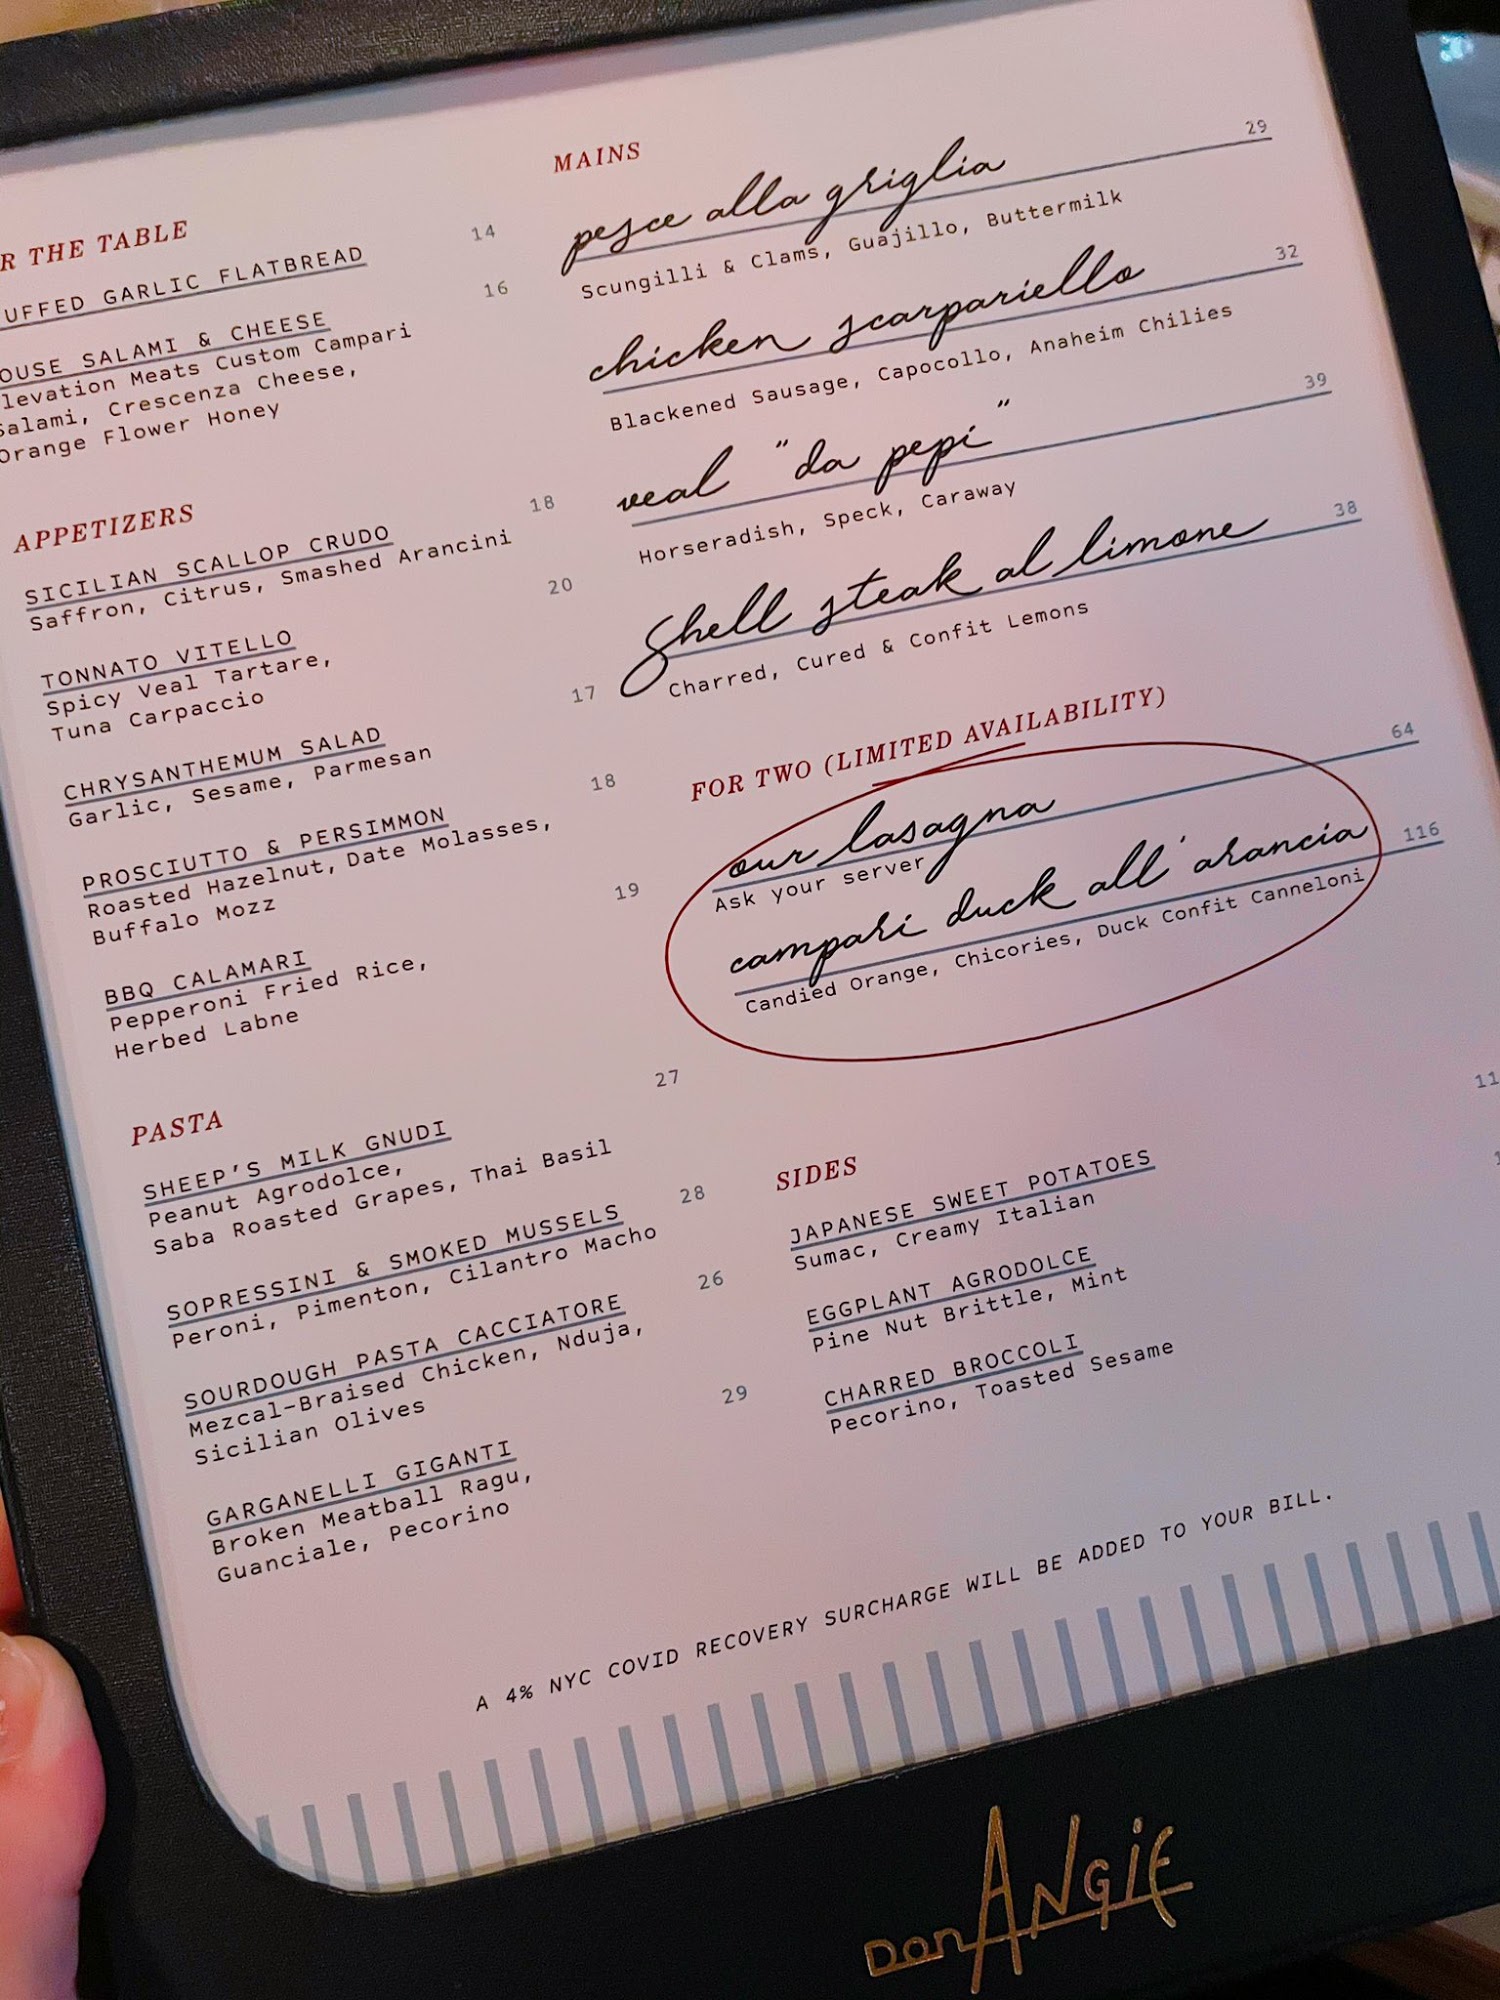 R THE TABLE
UFFED GARLIC FLATBREAD 14
OUSE SALAMI & CHEESE 16
levation Meats Custom Campari
Salami, Crescenza Cheese,
Orange Flower Honey
APPETIZERS
SICILIAN SCALLOP CRUDO 18
Saffron, Citrus, Smashed Arancini
TONNATO VITELLO 20
Spicy Veal Tartare,
Tuna Carpaccio
CHRYSANTHEMUM SALAD 17
Garlic, Sesame, Parmesan
PROSCIUTTO & PERSIMMON 18
Roasted Hazelnut, Date Molasses,
Buffalo Mozz
BBQ CALAMARI 19
Pepperoni Fried Rice,
Herbed Labne
PASTA
SHEEP'S MILK GNUDI 27
Peanut Agrodolce,
Saba Roasted Grapes, Thai Basil
SOPRESSINI & SMOKED MUSSELS 28
Peroni, Pimenton, Cilantro Macho
SOURDOUGH PASTA CACCIATORE 26
Mezcal-Braised Chicken, Nduja,
Sicilian Olives
GARGANELLI GIGANTI 29
Broken Meatball Ragu,
Guanciale, Pecorino
MAINS
pesce alla griglia 29
Scungilli & Clams, Guajillo, Buttermilk
chicken scarpariello 32
Blackened Sausage, Capocollo, Anaheim Chilies
veal "da pepi" 39
Horseradish, Speck, Caraway
Shell steak al limone 38
Charred, Cured & Confit Lemons
FOR TWO (LIMITED AVAILABILITY)
our lasagna 64
Ask your server
campari duck all' arancia 116
Candied Orange, Chicories, Duck Confit Canneloni
SIDES
JAPANESE SWEET POTATOES 11
Sumac, Creamy Italian
EGGPLANT AGRODOLCE
Pine Nut Brittle, Mint
CHARRED BROCCOLI
Pecorino, Toasted Sesame
A 4% NYC COVID RECOVERY SURCHARGE WILL BE ADDED TO YOUR BILL.
Don ANGIE